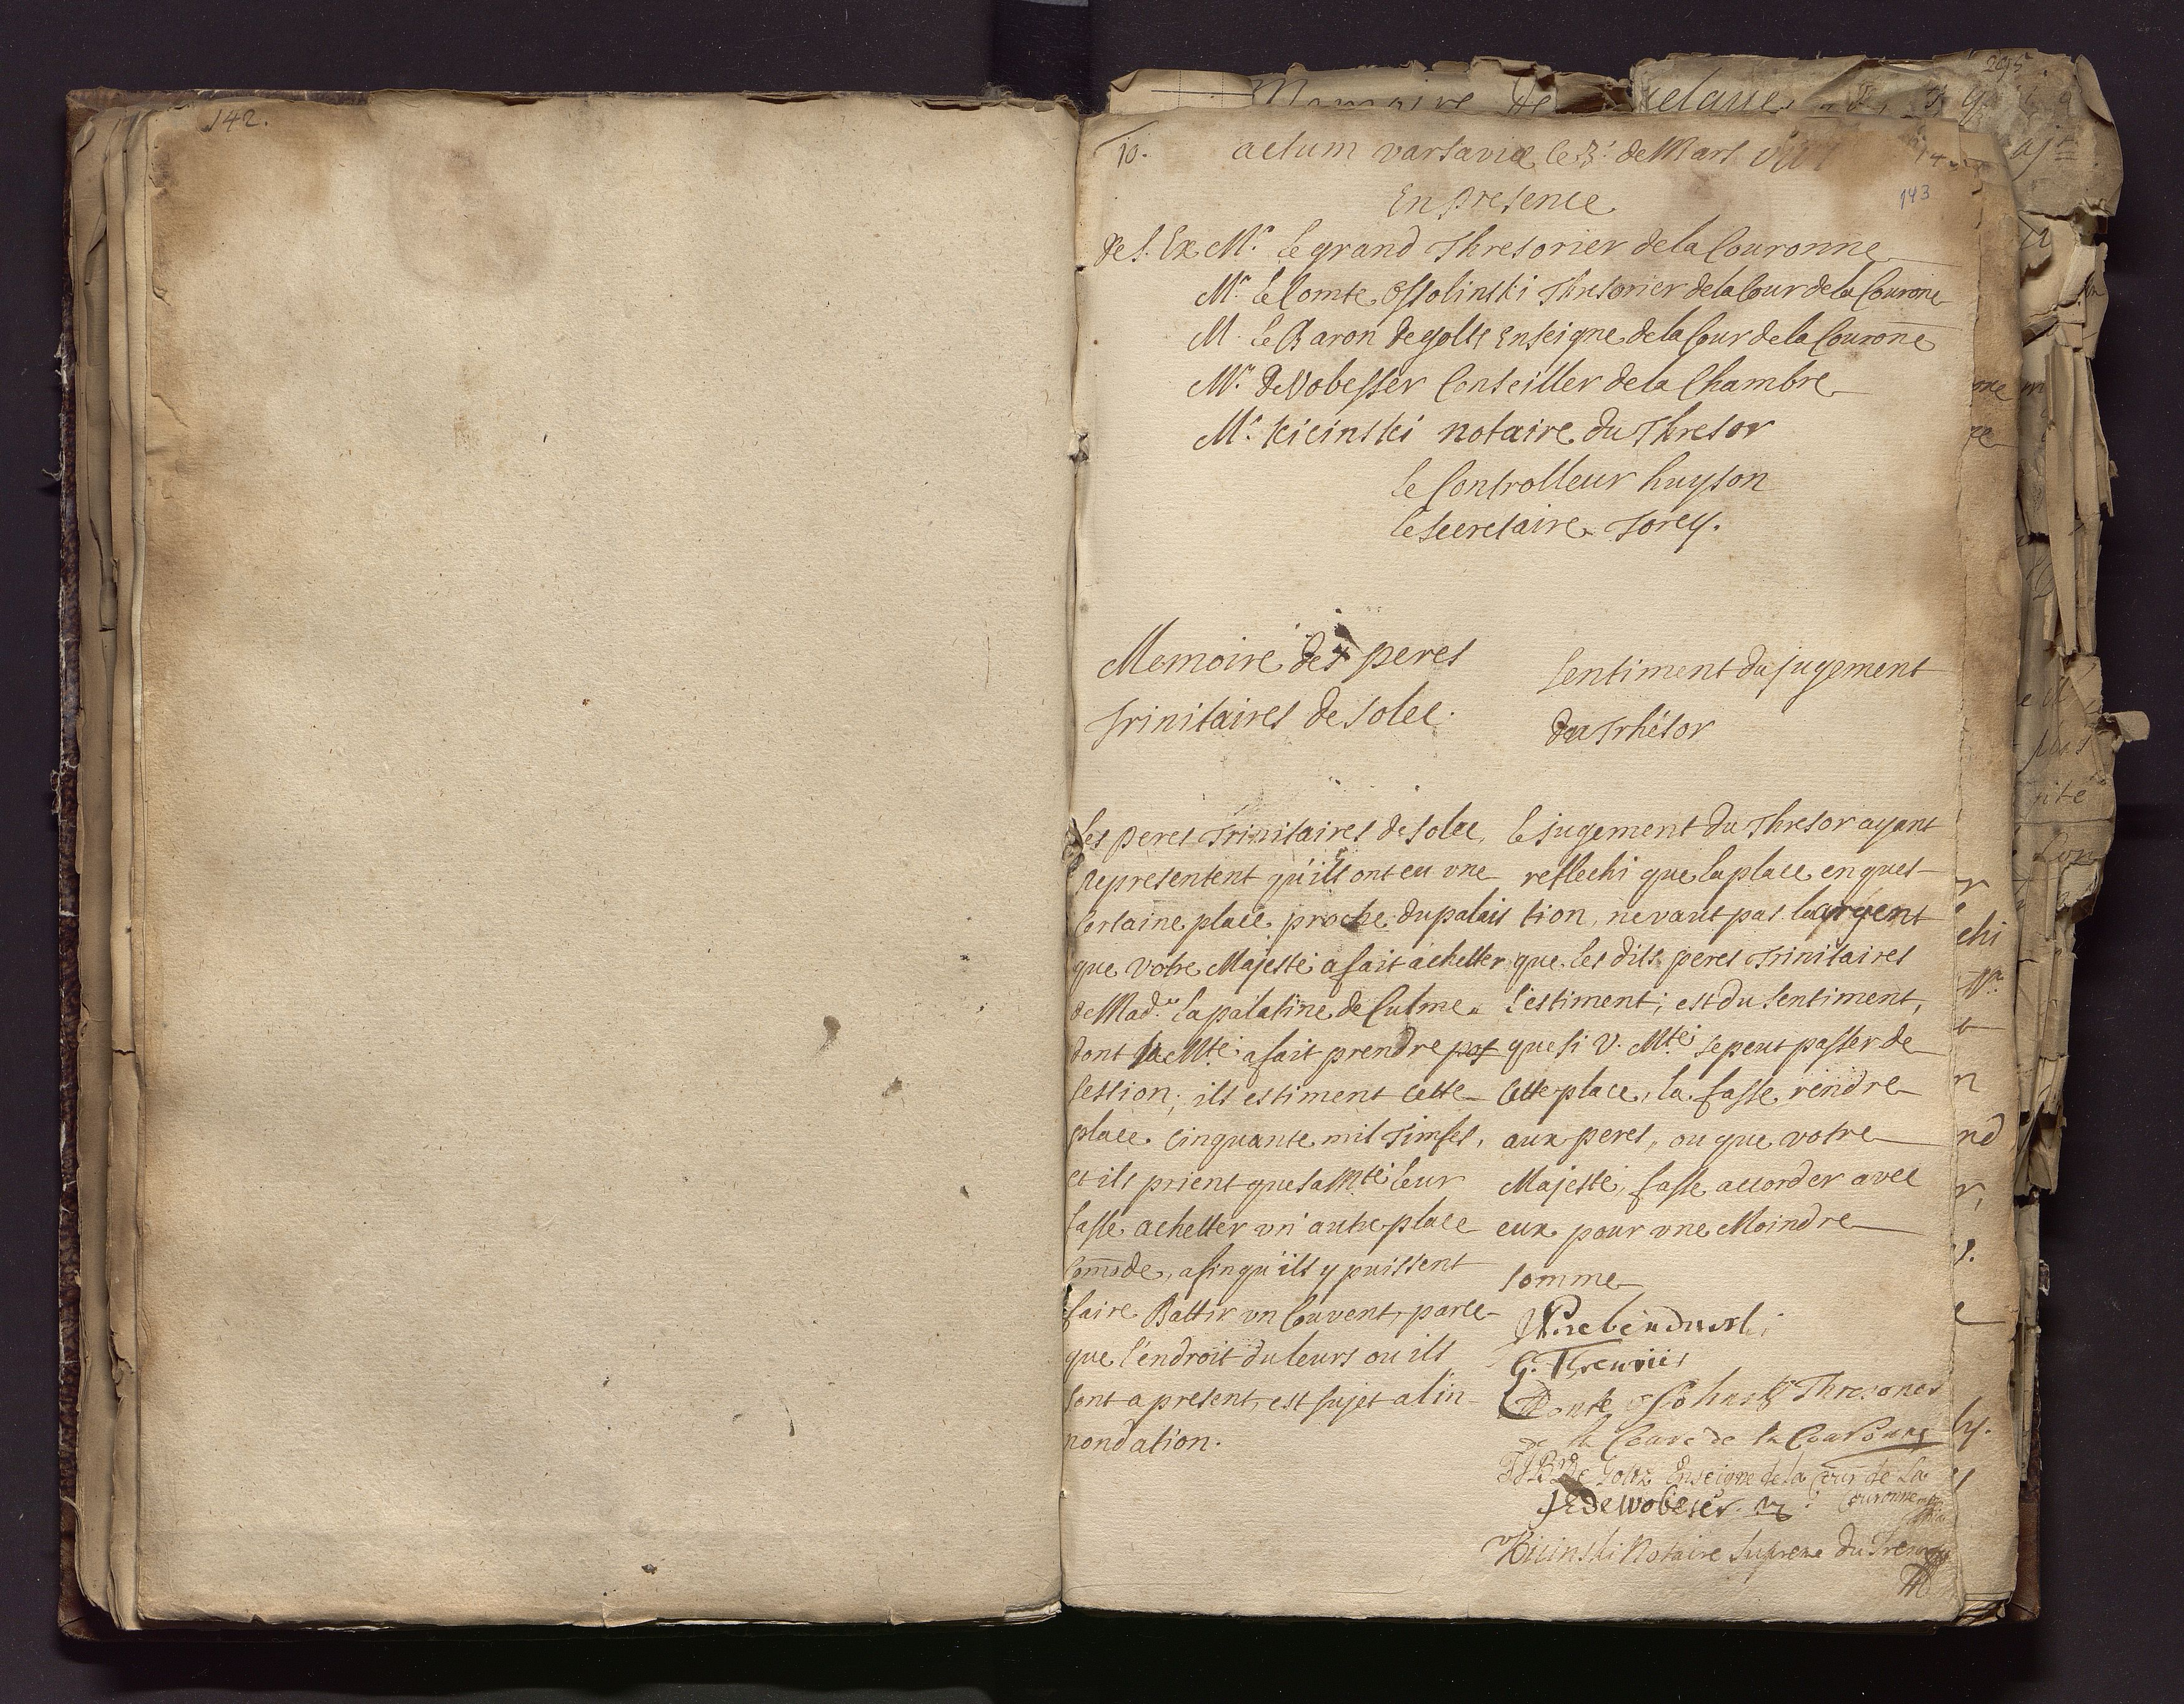 142.
10.
actum varsaviæ le 3. de Mars
143
En presence
de S. Ex. Mr. le grand Thresorier de la Couronne
Mr. le Comte Ossolinski Thresorier de la Cour de la Courone
M. le Baron de golts Enseigne de la Cour de la Courone
Mr. de Vobesser Conseiller de la Chambre
Mr. Kicinski notaire du Thresor
le Controlleur huyson
le Secretaire Torey.
Memoire des peres
Trinitaires de Solec.
Sentiment du jugement
du Trhésor
les peres Trinitaires de Solec,
representent qu'ils ont eu vne
certaine place proche du palais
que votre Majesté a fait achetter
de Made. la palatine de Culme
dont sa Mté. a fait prendre pos
session; ils estiment cette
place cinquante mil Timfes,
et ils prient que sa Mté leur
fasse achetter vn' autre place
comode, afin qu'ils y puissent
faire Battir vn Couvent, parce
que l'endroit du leurs ou ils
sont a present, est sujet a l'in-
nondation.
le jugement du Thresor ayant
reflechi que la place en ques-
tion, ne vaut pas l'argent
que les dits peres Trinitaires
l'estiment; est du sentiment,
que si V. Mté se peut passer de
cette place, la fasse rendre
aux peres, ou que votre
Majesté, fasse accorder avec
eux pour vne Moindre
somme
Przebendowski
G. Thresorier
Comte Ossolinski Thresorier
de la Cour de la Couronne
de Goltz Enseigne de la Cour de la
Couronne
de Wobeser
Kicinski Notaire Supreme du Tresor
295
Memoire de
chi
Mr.
n
nd
r,
e
ité